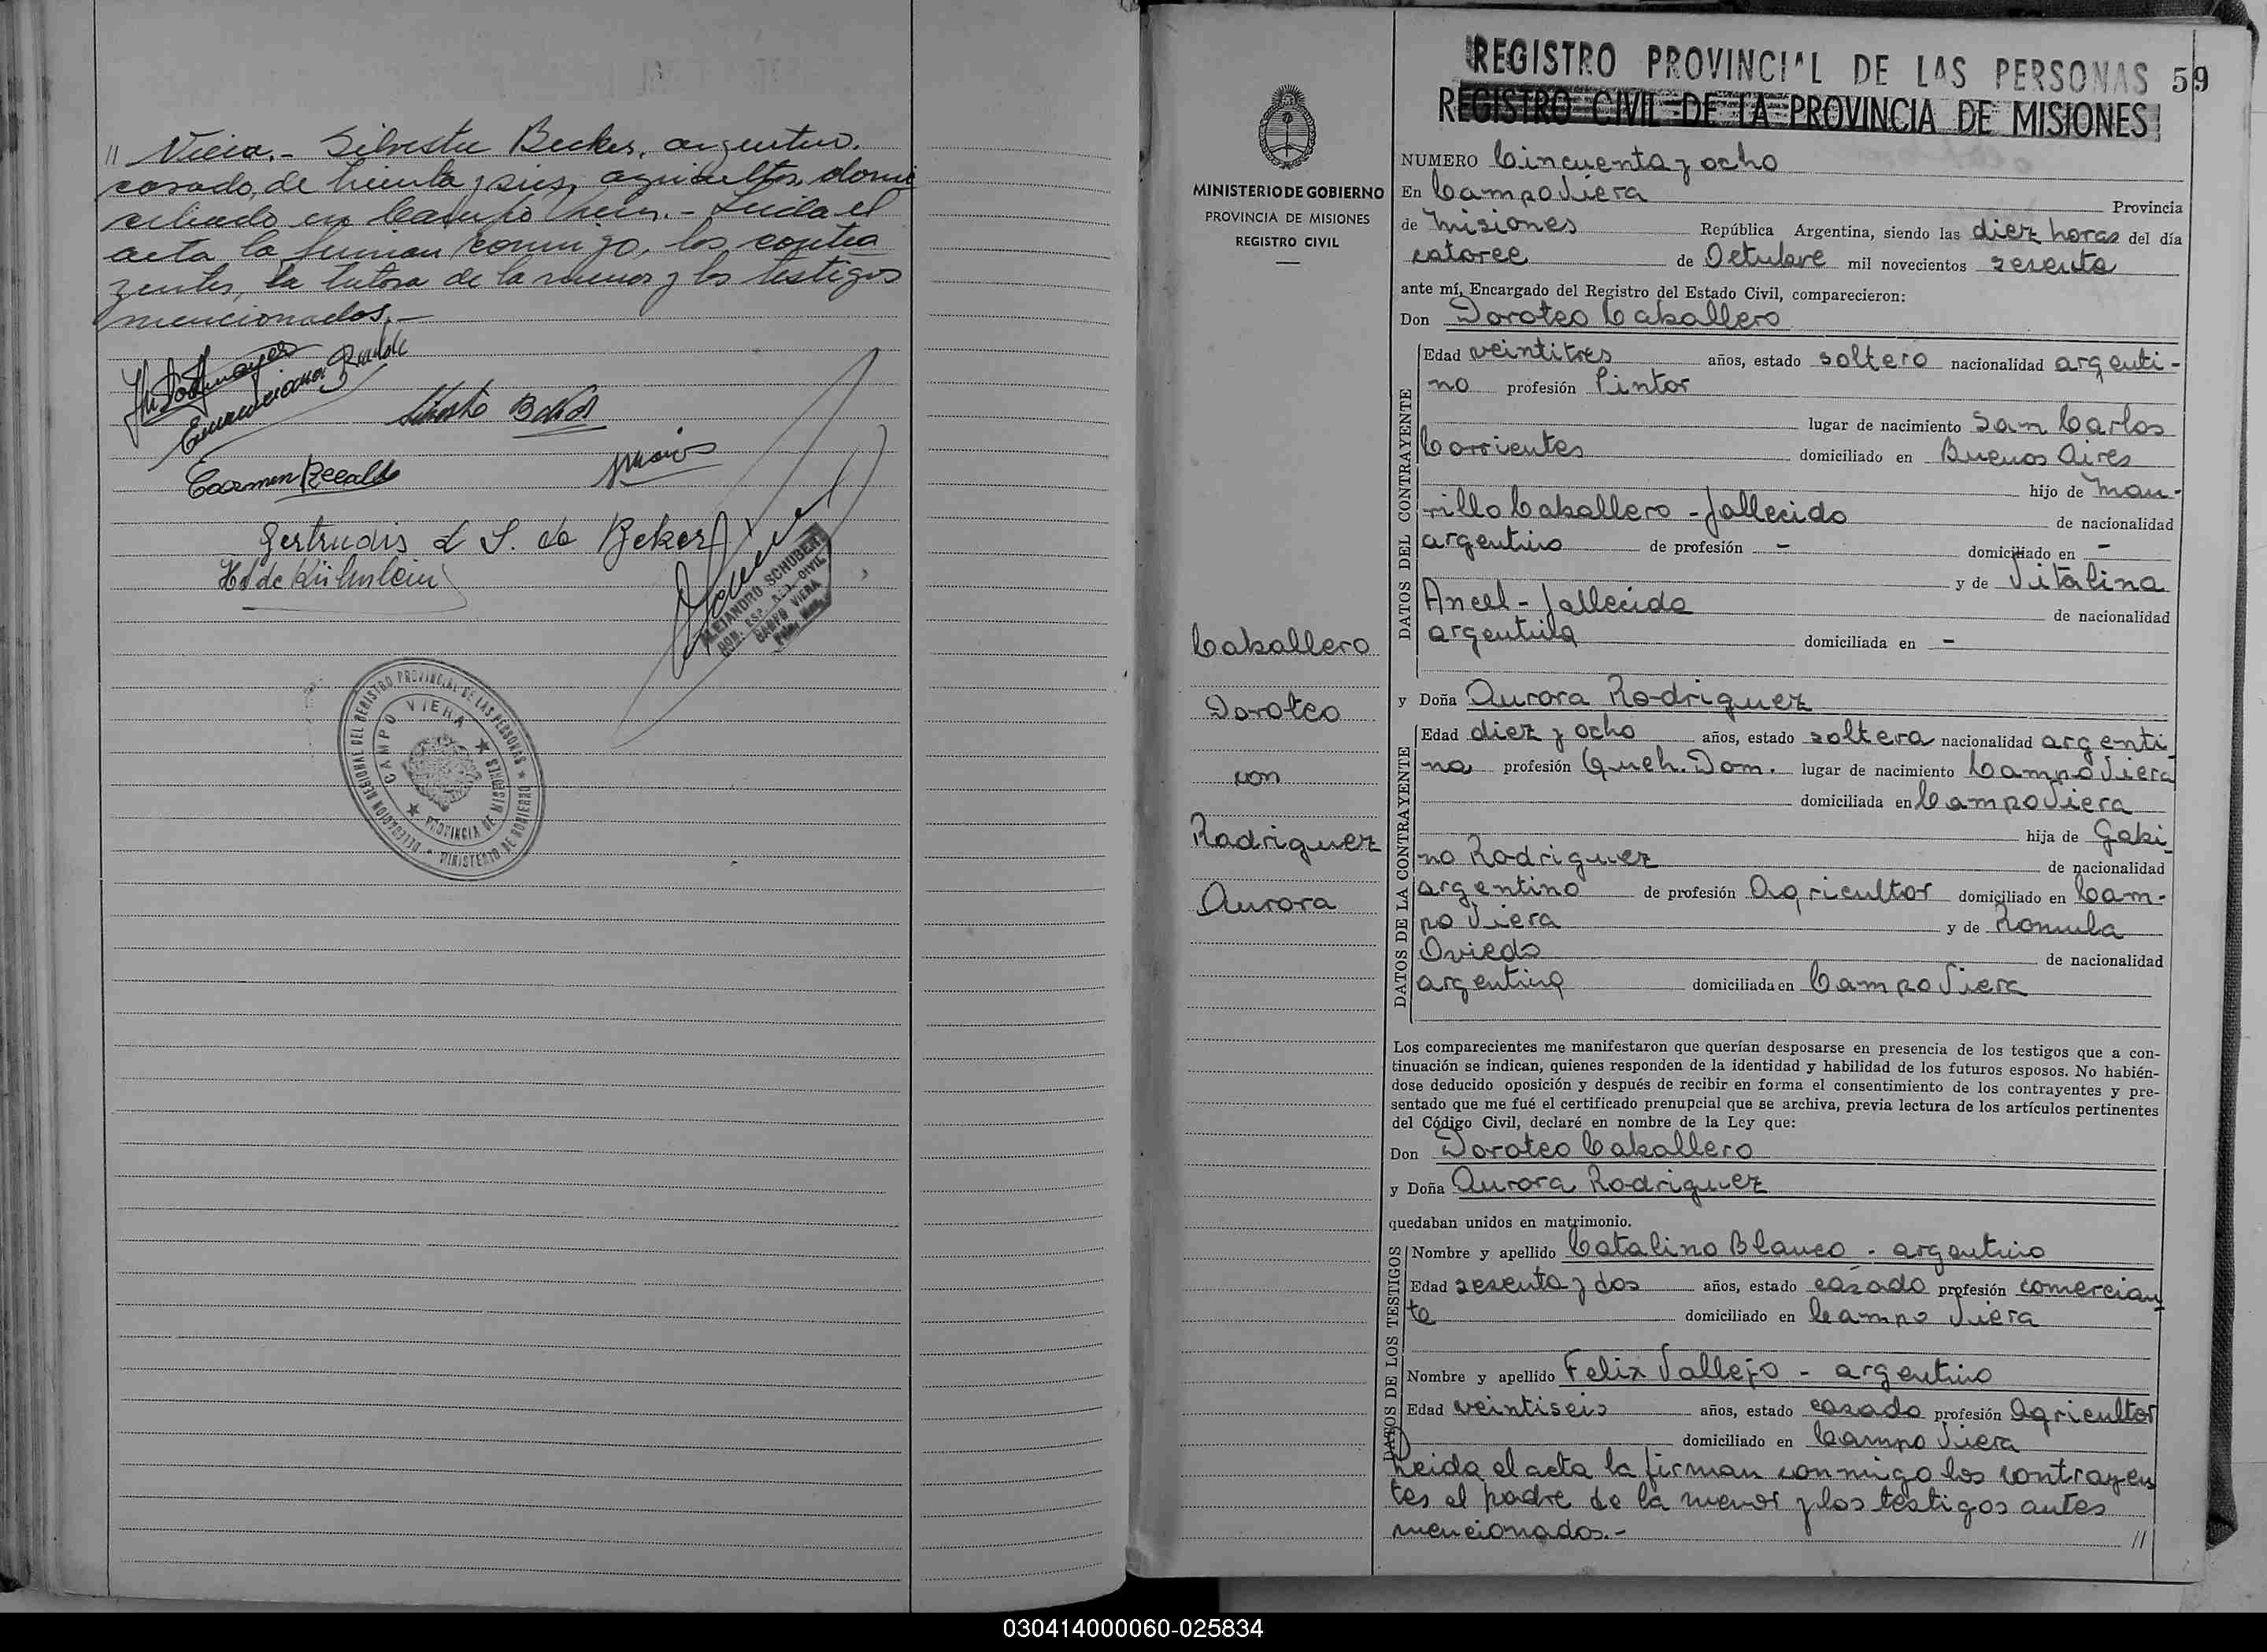 // Viera.- Silvestre Becker, argentino,
casado, de treinta y seis, agricultor, domi
ciliado en Campo Viera.- Leida el
acta la firman conmigo, los contra
yentes, la tutora de la menor y los testigos
mencionados.-
Carmen Recalde
Gertrudis L S. de Beker
H. de Kühnlein
ALEJANDRO SCHUBERT
CAMPO VIERA
DELEGACION REGIONAL DEL REGISTRO PROVINCIAL DE LAS PERSONAS
MINISTERIO DE GOBIERNO
CAMPO VIERA
PROVINCIA DE MISIONES
REGISTRO PROVINCIAL DE LAS PERSONAS 59
REGISTRO CIVIL DE LA PROVINCIA DE MISIONES
MINISTERIO DE GOBIERNO
PROVINCIA DE MISIONES
REGISTRO CIVIL
Caballero
Doroteo
con
Rodriguez
Aurora
NUMERO Cincuenta y ocho
En Campo Viera Provincia
de Misiones República Argentina, siendo las diez horas del día
catorce de Octubre mil novecientos sesenta
ante mí, Encargado del Registro del Estado Civil, comparecieron:
Don Doroteo Caballero
DATOS DEL CONTRAYENTE
Edad veintitres años, estado soltero nacionalidad argenti-
no profesión Pintor
lugar de nacimiento San Carlos
Corrientes domiciliado en Buenos Aires
hijo de Mau-
rillo Caballero - fallecido de nacionalidad
argentino de profesión - domiciliado en -
y de Vitalina
Ancel - fallecida de nacionalidad
argentina domiciliada en -
y Doña Aurora Rodriguez
DATOS DE LA CONTRAYENTE
Edad diez y ocho años, estado soltera nacionalidad argenti
na profesión Queh. Dom. lugar de nacimiento Campo Viera
domiciliada en Campo Viera
hija de Gabi
no Rodriguez de nacionalidad
argentino de profesión Agricultor domiciliado en Cam-
po Viera y de Romula
Oviedo de nacionalidad
argentina domiciliada en Campo Viera
Los comparecientes me manifestaron que querían desposarse en presencia de los testigos que a con-
tinuación se indican, quienes responden de la identidad y habilidad de los futuros esposos. No habién-
dose deducido oposición y después de recibir en forma el consentimiento de los contrayentes y pre-
sentado que me fué el certificado prenupcial que se archiva, previa lectura de los artículos pertinentes
del Código Civil, declaré en nombre de la Ley que:
Don Doroteo Caballero
y Doña Aurora Rodriguez
quedaban unidos en matrimonio.
DATOS DE LOS TESTIGOS
Nombre y apellido Catalino Blanco - argentino
Edad sesenta y dos años, estado casado profesión comercian
te domiciliado en Campo Viera
Nombre y apellido Felix Vallejo - argentino
Edad veintiseis años, estado casado profesión Agricultor
domiciliado en Campo Viera
Leida el acta la firman conmigo los contrayen
tes el padre de la menor y los testigos antes
mencionados.- //
030414000060-025834